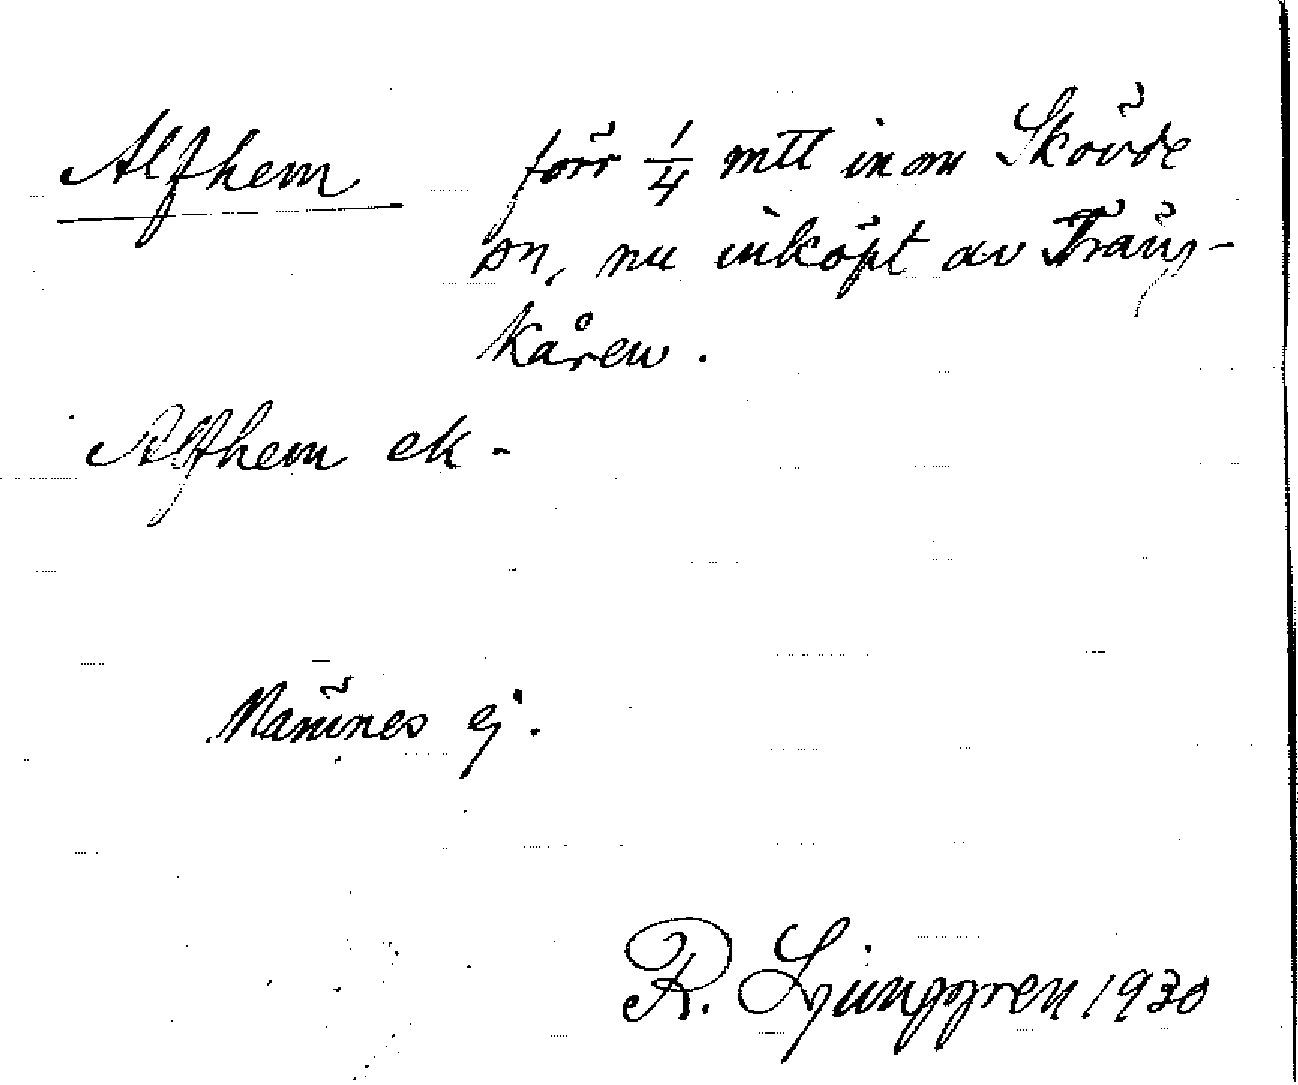 Alfhem förr 1/4 mtl inom Skövde
sn, nu inköpt av Träng-
kåren.
Alfhem ek.
Namnes ej.
R. Ljunggren 1930